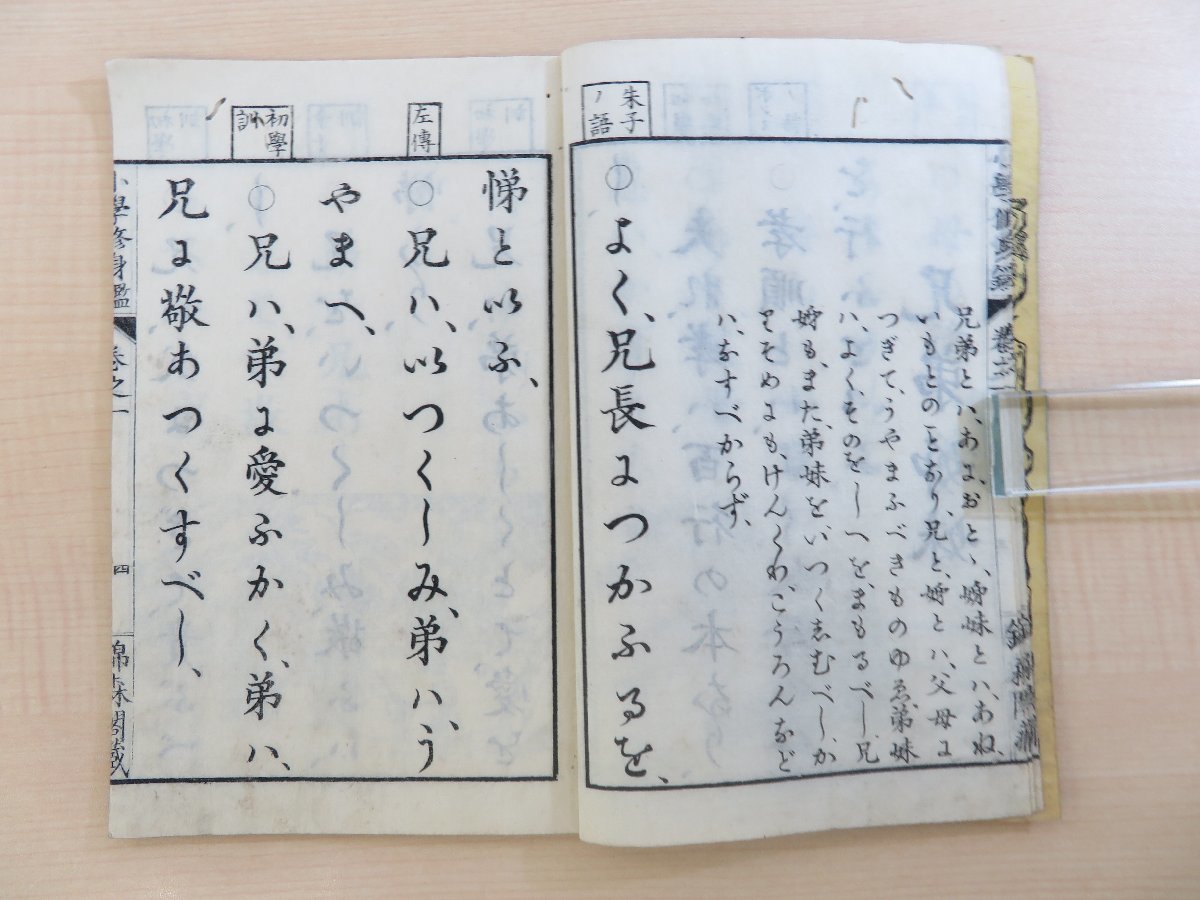 兄弟とハ、あに、おとゝ、姉妹とハ、あね、
いもとのことなり、兄と、姉とハ、父母に
つぎて、うやまふべきものゆゑ、弟妹
ハ、よく、そのをしへを、まもるべし、兄
姉も、また、弟妹を、いつくしむべし、か
りそめにも、けんくわ、こうろんなど
ハ、なすべからず、
朱子ノ語
○よく、兄長につかふるを、
悌といふ、
左傳
○兄ハ、いつくしみ、弟ハ、う
やまへ、
初學訓
○兄ハ、弟に愛ふかく、弟ハ、
兄に敬あつくすべし、
小學修身鑑
卷之一
四
錦森閣藏